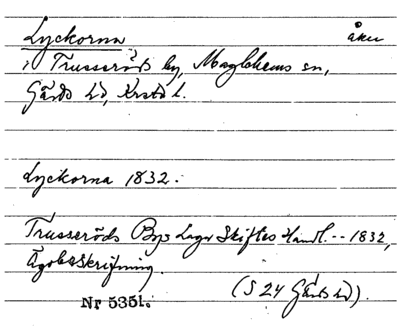 Lyckorna åker
i Trusseröds by, Maglehems sn,
Gärds hd, Krstds l.
Lyckorna 1832.
Trusseröds Bys Laga Skiftes Handl. -- 1832,
Ägobeskrifning.
(S 24 Gärds hd).
Nr 5351.